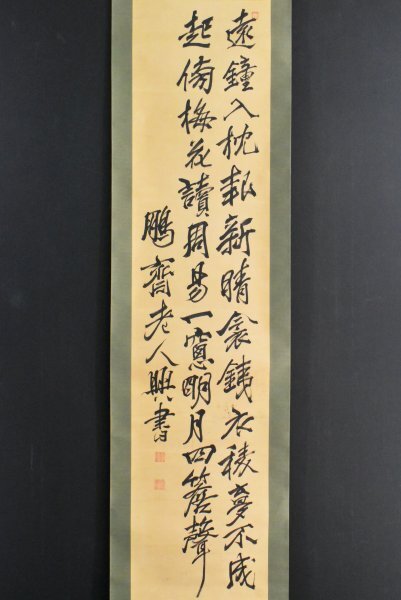 遠鐘入枕報新晴衾鐵衣稜夢不成
起傍梅花讀周易一窻明月四簷聲
鵬齋老人興書